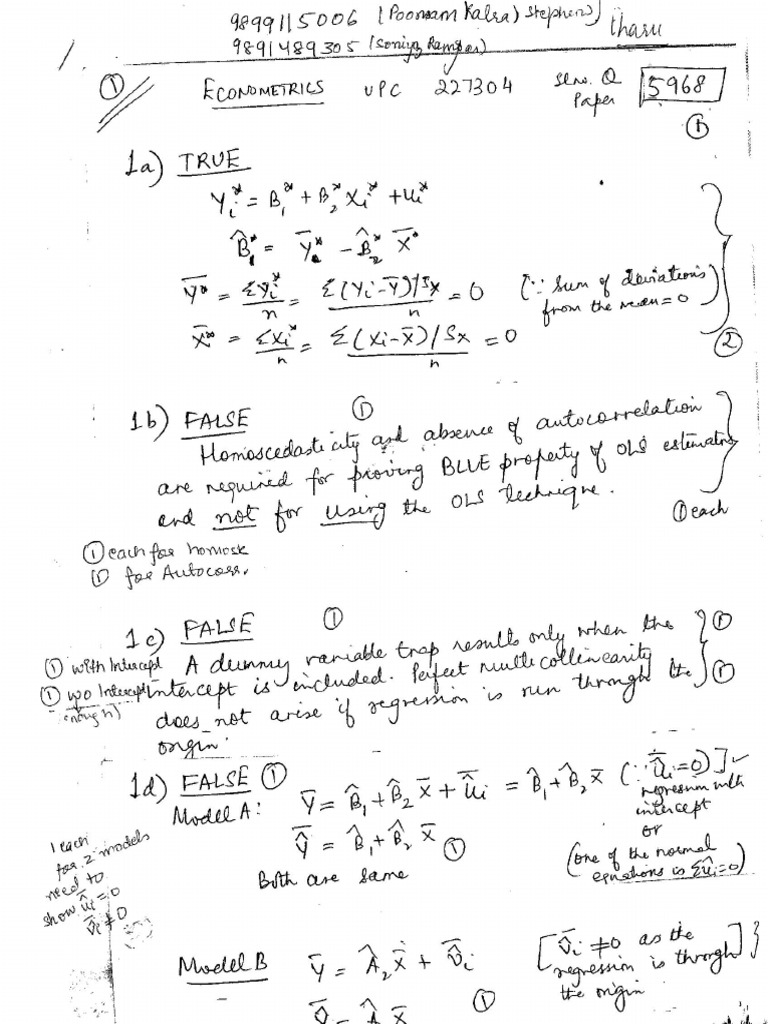 9899115006 (Poonam Kalra) Stephens
9891489305 (Soniya
①
ECONOMETRICS UPC 227304
Q
Paper
5968
①
1a) TRUE
Yi* = B1* + B2* Xi* + ui*
B̂1* = Ȳ* − B̂2* X̄*
Ȳ* = ΣYi*/n = Σ(Yi-Ȳ)/Sx / n = 0 (∵ Sum of deviations
from the mean = 0)
X̄* = ΣXi*/n = Σ(Xi-X̄)/Sx / n = 0
②
1b) FALSE ①
Homoscedasticity and absence of autocorrelation
are required for proving BLUE property of OLS estimators
and not for using the OLS technique.
① each
① each for homosk
① for Autocorr.
1c) FALSE ①
A dummy variable trap results only when the ①
① with Intercept
intercept is included. Perfect multicollinearity
① w/o Intercept
does not arise if regression is run through the ①
origin.
1d) FALSE ①
Model A: Ȳ = B̂1 + B̂2 X̄ + ûi = B̂1 + B̂2 X̄ (∵ ûi = 0)] ✓
regression with
intercept
or
Ŷ = B̂1 + B̂2 X̄ ①
(one of the normal
equations is Σûi = 0)
Both are same
1 each
for 2 models
need to
show ûi = 0
v̄i ≠ 0
Model B Ȳ = Â2 X̄ + v̂i
[v̂i ≠ 0 as the
regression is through
the origin]
①
Ŷ = Â X̄